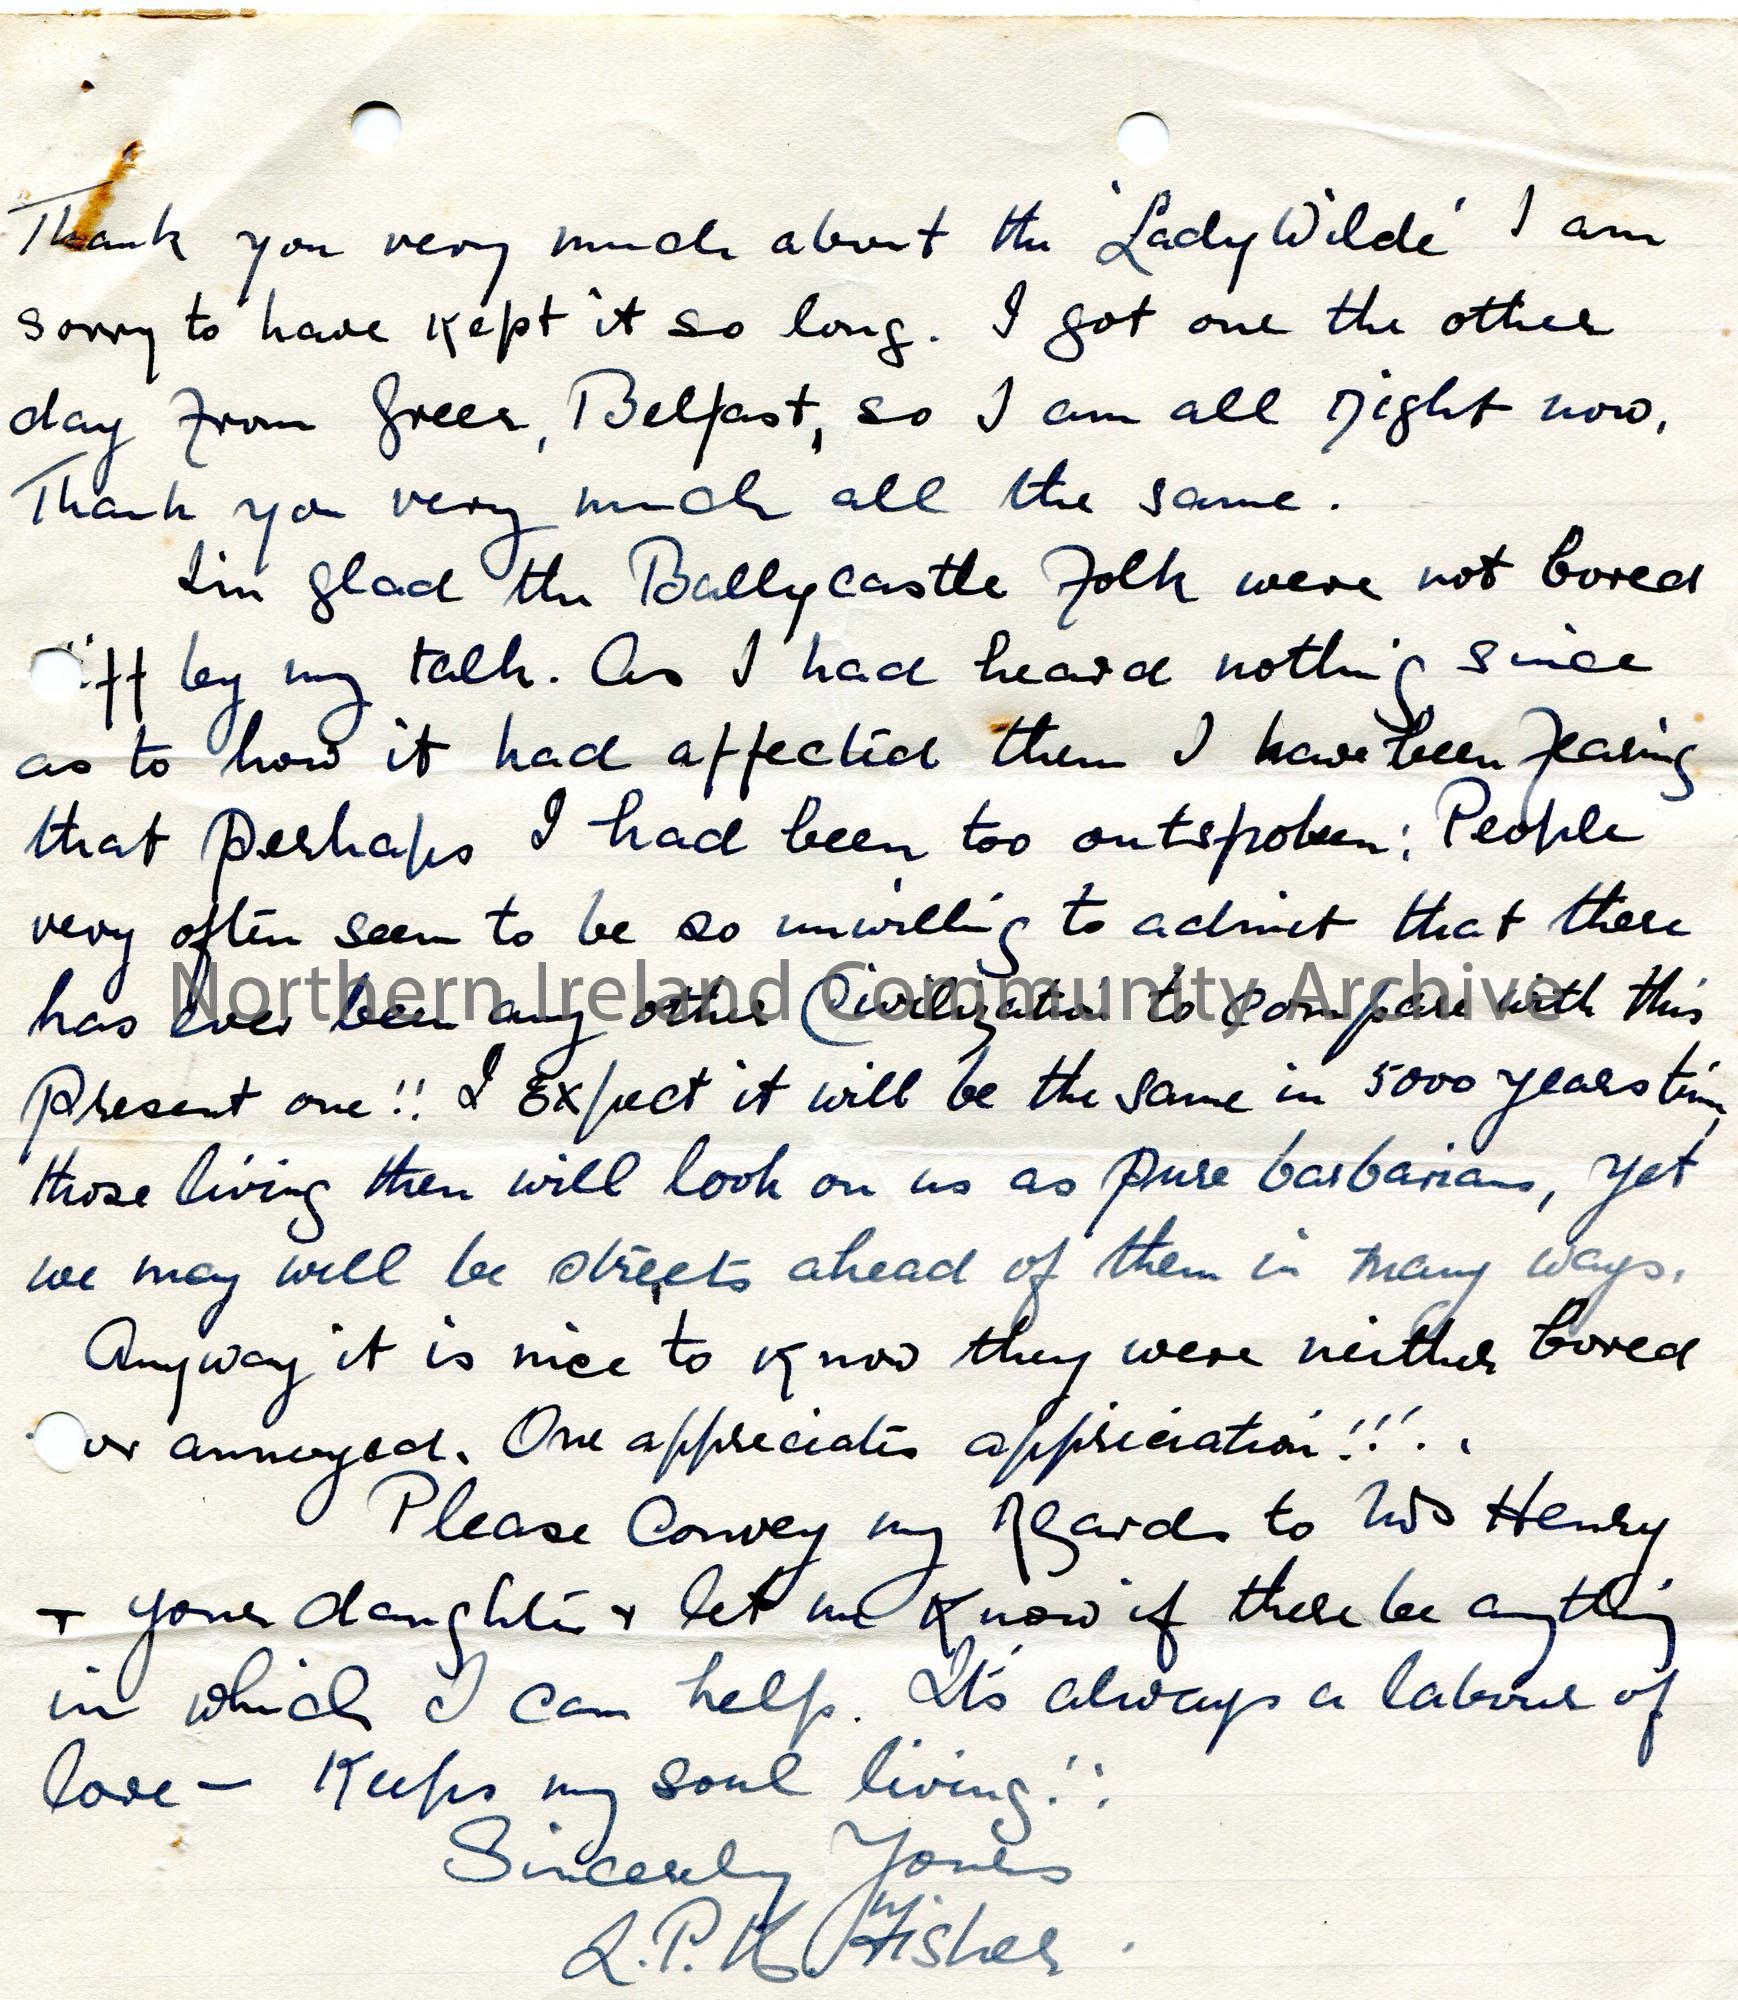 Thank you very much about the 'Lady Wilde' I am
sorry to have kept it so long. I got one the other
day from Greer, Belfast, so I am all right now.
Thank you very much all the same.
I'm glad the Ballycastle Folk were not bored
iff by my talk. As I had heard nothing since
as to how it had affected them I have been fearing
that perhaps I had been too outspoken; People
very often seem to be so unwilling to admit that there
has ever been any other Civilization to compare with this
Northern Ireland Community Archive
present one!! I expect it will be the same in 5000 years time,
those living then will look on us as pure barbarians, yet
we may well be streets ahead of them in many ways.
Anyway it is nice to know they were neither bored
or annoyed. One appreciates appreciation!!!..
Please Convey my regards to Mrs Henry
+ your daughter + let me know if there be anything
in which I can help. It's always a labour of
love — Keeps my soul living!!
Sincerely Yours
Fisher.